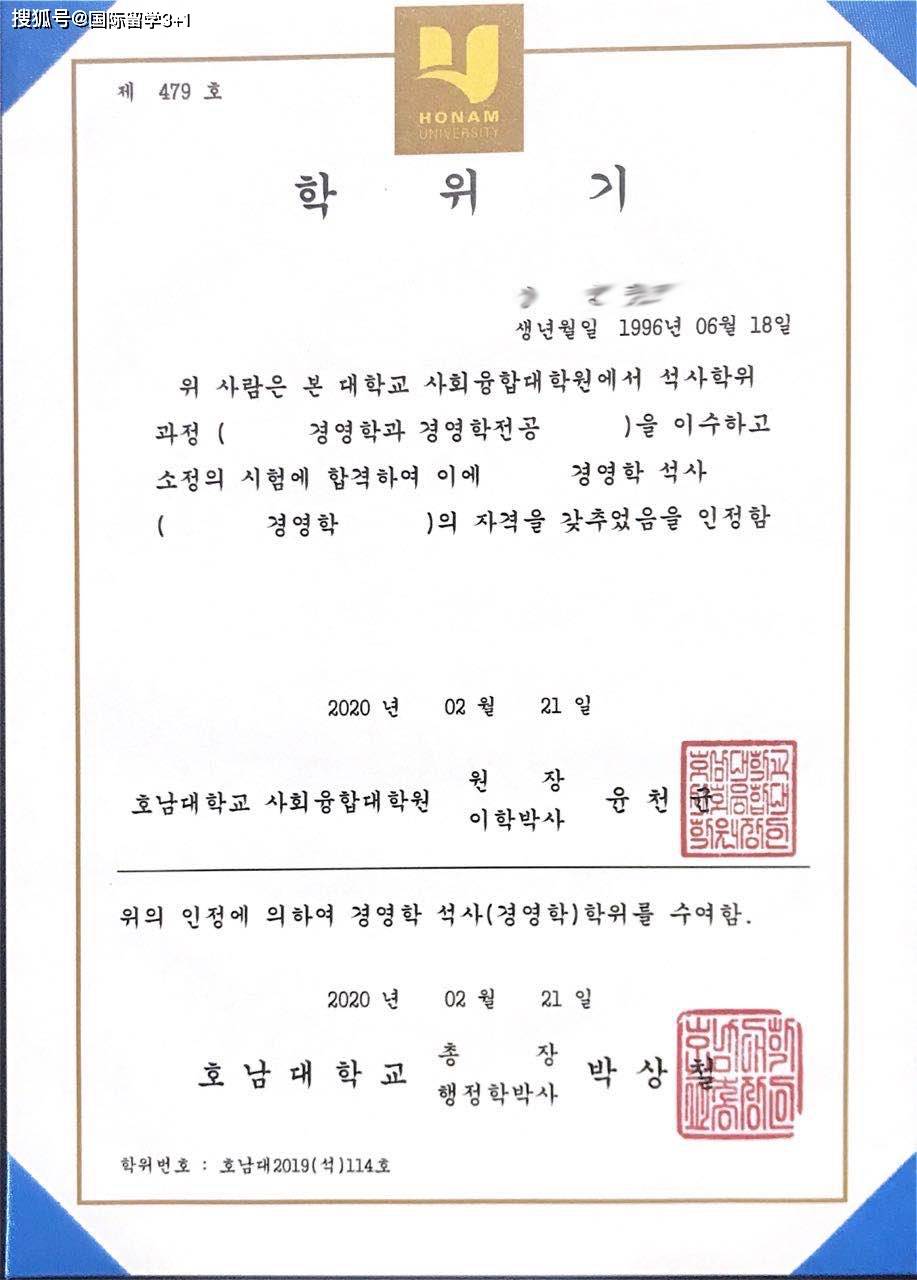 搜狐号@国际留学3+1
HONAM
UNIVERSITY
제 479 호
학 위 기
생년월일 1996년 06월 18일
위 사람은 본 대학교 사회융합대학원에서 석사학위
과정 ( 경영학과 경영학전공 )을 이수하고
소정의 시험에 합격하여 이에 경영학 석사
( 경영학 )의 자격을 갖추었음을 인정함
2020 년 02 월 21 일
호남대학교 사회융합대학원 원 장
이학박사 윤 천 균
위의 인정에 의하여 경영학 석사(경영학)학위를 수여함.
2020 년 02 월 21 일
호 남 대 학 교 총 장
행정학박사 박 상 철
학위번호 : 호남대2019(석)114호